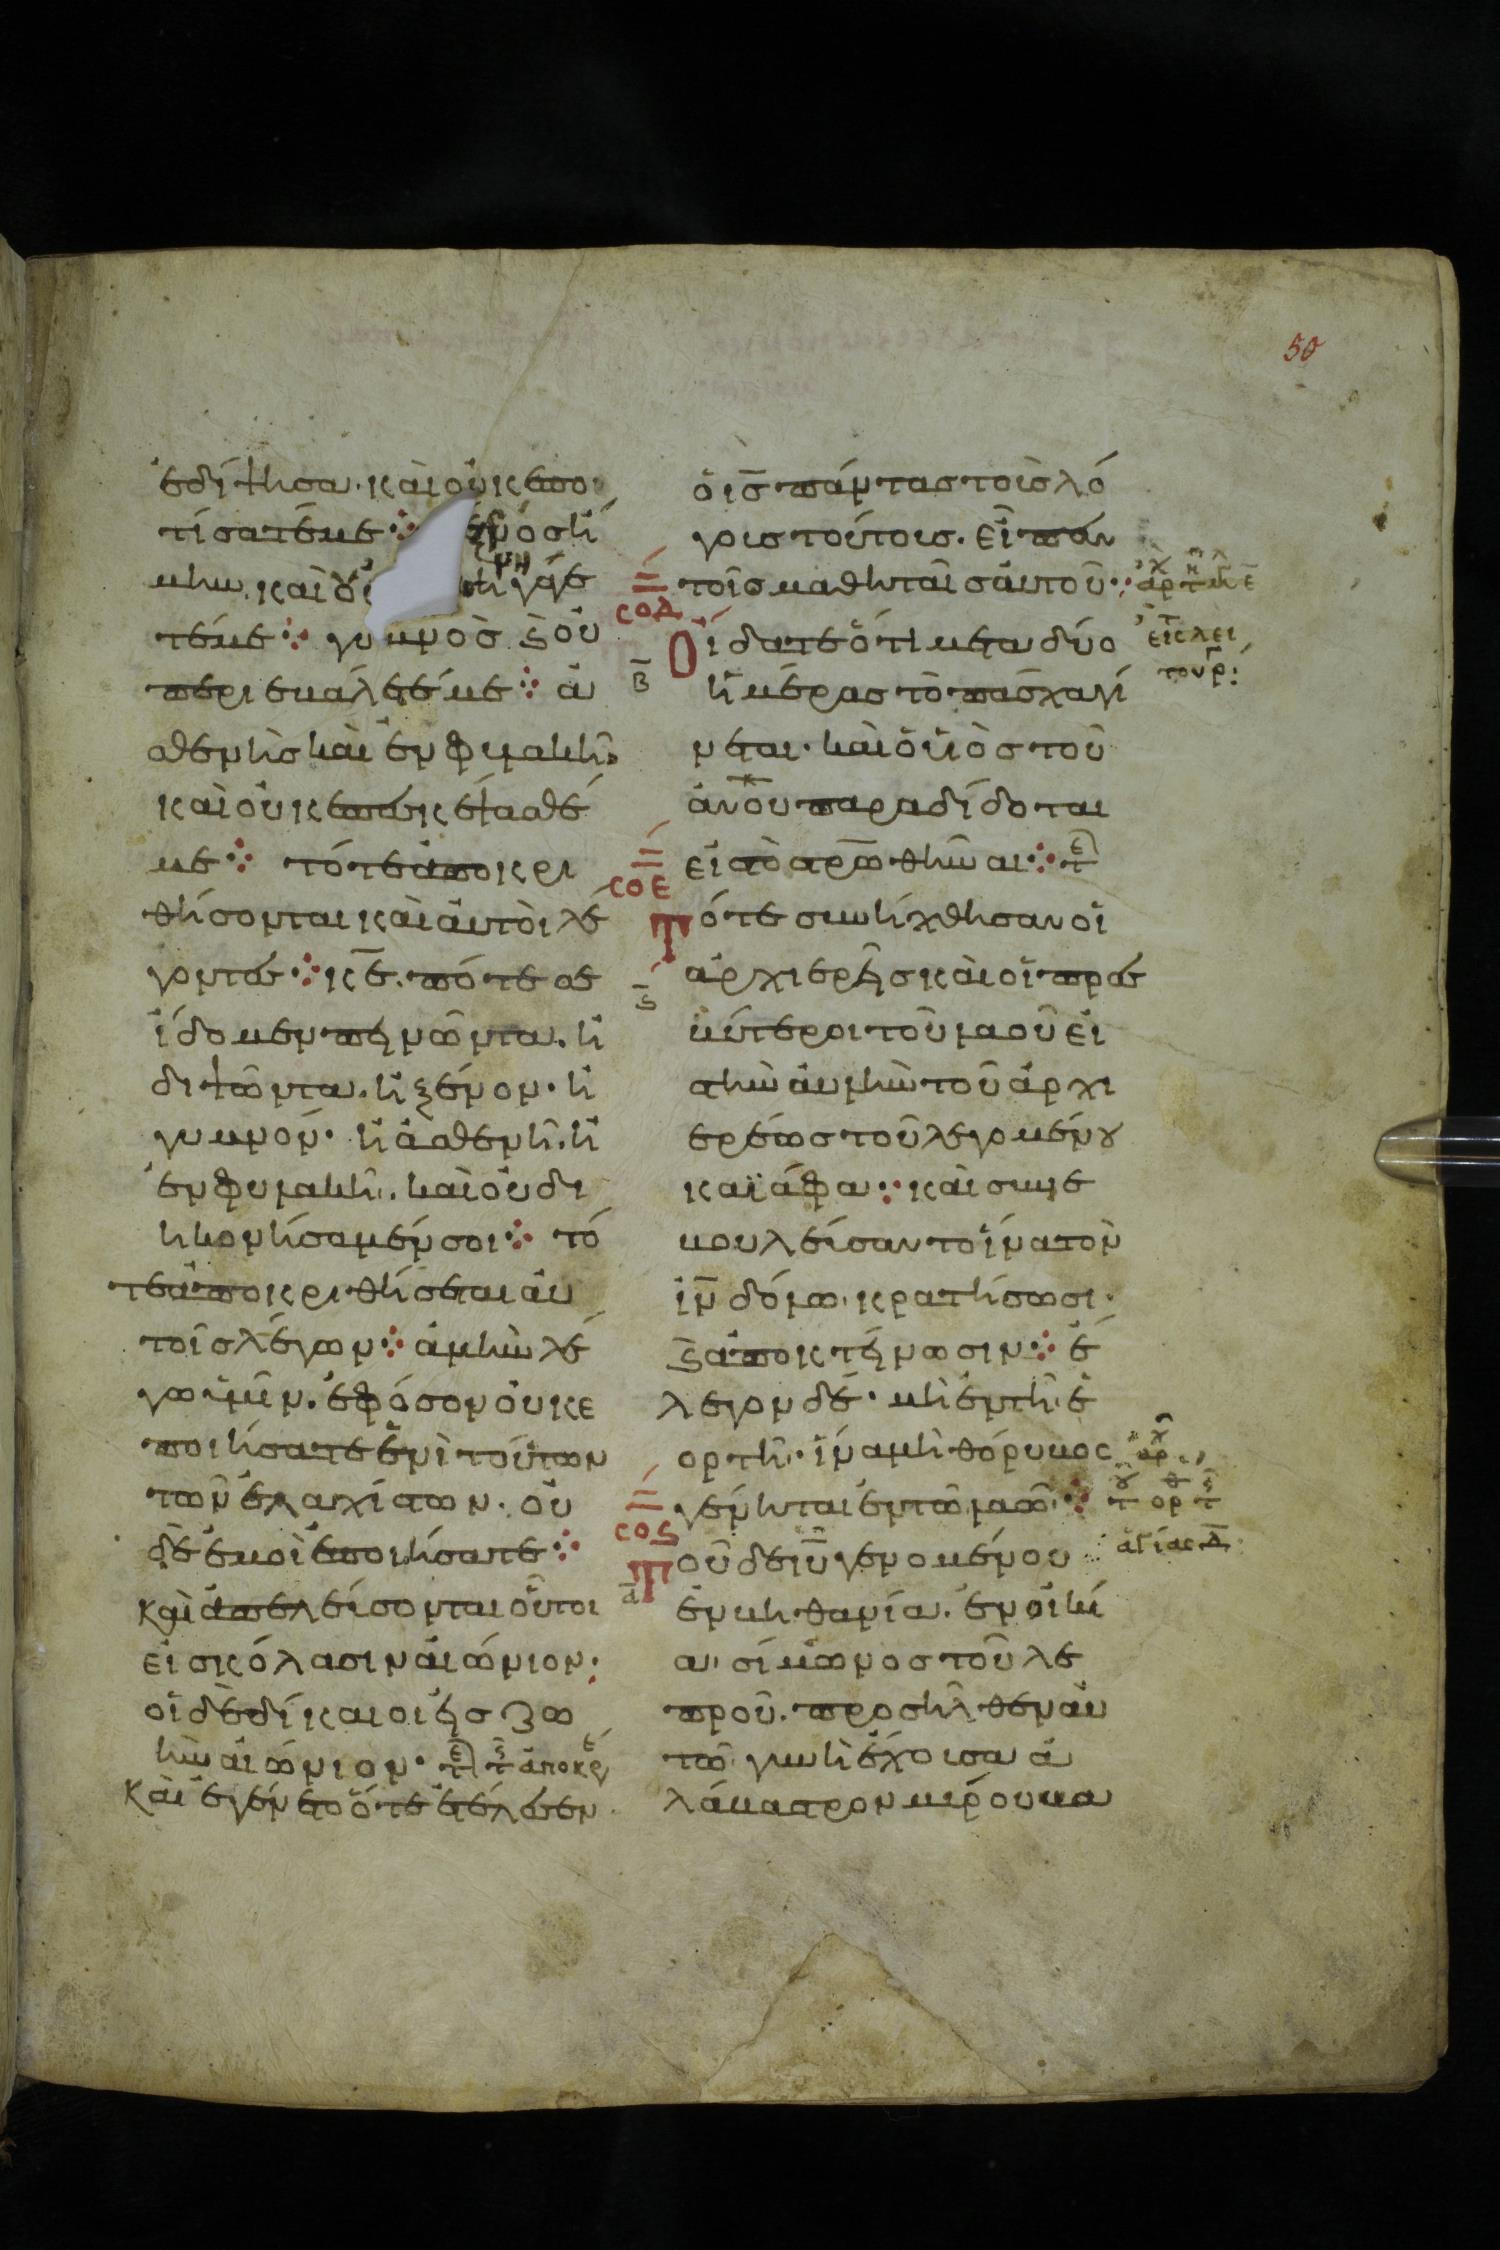 50
ἐδίψησα· καὶ οὐκ ἐπο
τίσατέ με ξένος ἤ
μην. καὶ οὐ νηγάγε
τέ με γυμνὸς ς οὐ
περιεβάλετέ με ἀ
σθενὴς καὶ ἐν φυλακῆ
καὶ οὐκ ἐπεσκέψασθέ
με τότε ἀποκρι
θήσονται καὶ αὐτοὶ λέ
γοντες κε. πότε σε
ἴδομεν πεινῶντα. ἢ
διψῶντα. ἢ ξένον· ἢ
γυμνόν· ἢ ἀσθενῆ. ἢ
ἐν φυλακῆ. καὶ οὐ δι
ηκονήσαμέν σοι τό
τε ἀποκριθήσεται αὐ
τοῖς λέγων ἀμὴν λέ
γω ὑμῖν. ἐφόσον οὐκ ἐ
ποιήσατε ἑνὶ τούτων
τῶν ἐλαχίστων. οὐ
δὲ ἐμοὶ ἐποιήσατε
Καὶ ἀπελεύσονται οὗτοι
εἰς κόλασιν αἰώνιον·
οἱ δὲ δίκαιοι εἰς ζω
ὴν αἰώνιον·
Καὶ ἐγένετο ὅτε ἐτέλεσεν
ὁ ις πάντας τοὺς λό
γους τούτους. εἶπεν
τοῖς μαθηταῖς αὐτοῦ·
σοδ
Οἴδατε ὅτι μετα δύο
β
ἡμέρας τὸ πάσχα γί
νεται· καὶ ὁ υἱὸς τοῦ
ἀνου παραδίδοται
εἰς τὸ στρωθῆναι
σοε
Τότε συνήχθησαν οἱ
ἀρχιερεῖς καὶ οἱ πρεσ
ς
βύτεροι τοῦ λαοῦ εἰς
τὴν αὐλὴν τοῦ ἀρχι
ερέως τοῦ λεγομένου
καϊάφα καὶ συνε
βουλεύσαντο ἵνα τὸν
ιν δόλω. κρατήσωσι·
ς ἀποκτείνωσιν ἔ
λεγον δέ· μὴ ἐν τῆ ἑ
ορτῆ· ἵνα μὴ θόρυβος
γένηται ἐν τῶ λαῶ·
σος
Τοῦ δε ιυ γενομένου
α
ἐν βηθανία. ἐν οἰκί
α σίμωνος τοῦ λε
προῦ. προσῆλθεν αὐ
τῶ γυνὴ ἔχουσα ἀ
λάβαστρον μύρου βα